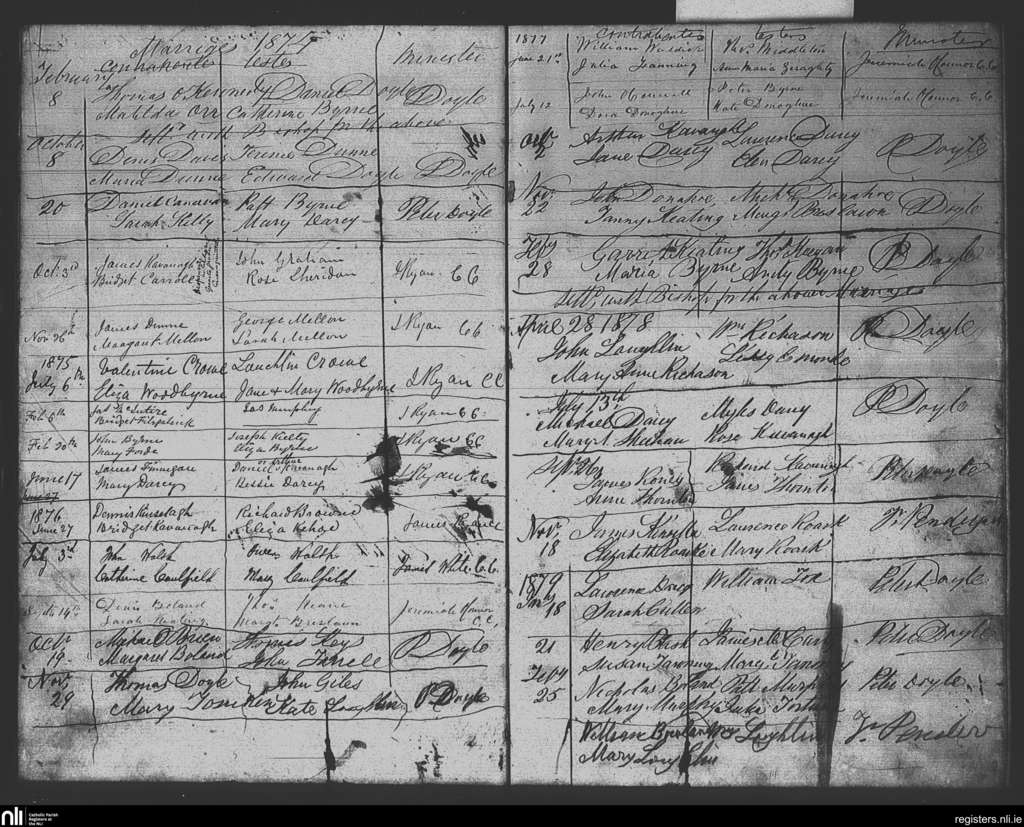 Marriges 1874
Contrahentes testes Minister
February
8 Thomas O Kennedy Daniel Doyle Doyle
Matilda Orr Catherine Byrne
with Bishop for the above
October
8 Denis Davis Terence Dunne
Maria Dunne Edward Doyle P Doyle
20 Daniel Canavan Patt Byrne Peter Doyle
Sarah Kelly Mary Darcy
Oct. 3rd James Kavanagh John Graham J Ryan CC
Bridget Carroll Rose Sheridan
Nov 26th James Dunne George Mellon J Ryan CC
Margaret Mellon Sarah Mellon
1875 Valentine Crowe Laughlin Crowe
July 6th Eliza Woodbyrne Jane & Mary Woodbyrne J Ryan CC
Feb 6th Jas Mc Intire Jas Murphy J Ryan CC
Bridget Fitzpatrick
Feb 30th John Byrne Joseph Kelty J Ryan CC
Mary Forde Eliza Byrne
or Arthur
June 17 James Finnegan Daniel Kavanagh J Ryan CC
Mary Darcy Bessie Darcy
June 27
1876 Dennis Russelagh Richard Browne
June 27 Bridget Kavanagh Eliza Kehoe James
July 3rd John Walsh Owen Walsh James White CC
Catherine Caulfield Mary Caulfield
Sept 14th Denis Boland Thos Keane Jeremiah Connor
Sarah Keating Margt Breslawn C.C.
Oct Michael O Brien Thomas Fay P Doyle
19 Margaret Boland Julia Farrell
Nov Thomas Doyle John Giles
29 Mary Tomkin Kate Loughlin P Doyle
1877 Contrahentes testes Minister
June 21st William Waldron Thos Middleton Jeremiah OConnor CC
Julia Fanning Anna Maria Geraghty
July 12 John OConnell Peter Byrne Jeremiah OConnor CC
Dora Donoghue Kate Donoghue
Oct Arthur Kavanagh Laurence Darcy P Doyle
2 Jane Darcy Ellen Darcy
Nov John Donahoe, Mich Donahoe P Doyle
22 Fanny Keating Margt Breslawn
Feby Garret Keating Thos Keegan P Doyle
28 Maria Byrne Andy Byrne
Settd with Bishop for the above Marriages
April 28 1878 Wm Richason P Doyle
John Laughlin Lizzy Edmonds
Mary Anne Richason
July 13th
Michael Darcy Myles Darcy P Doyle
Mary A Sheehan Rose Kavanagh
Sept 26 Richard Kavanagh Peter Doyle
James Roney James Thornton
Anne Thornton
Nov James Kinsella Laurence Roark Fr Pender
18 Elizabeth Roark Mary Roark
1879 Lawrence Darcy William Fox Peter Doyle
18 Sarah Cullen
21 Henry James Mc Peter Doyle
Susan Fanning Mary Fanning
Feby
25 Nicholas Boland Patt Murphy Peter Doyle
Mary Murphy Luke
William Breslan Loghlin Fr Pender
Mary Loughlin
nli Catholic Parish
Registers at
the NLI
registers.nli.ie